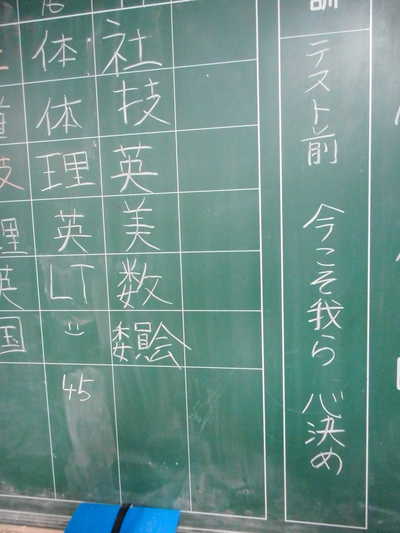 訓
テスト前 今こそ我ら 心決め
社
技
英
美
数
委員会
16
体
体
理
英
LT
45
理
英
国